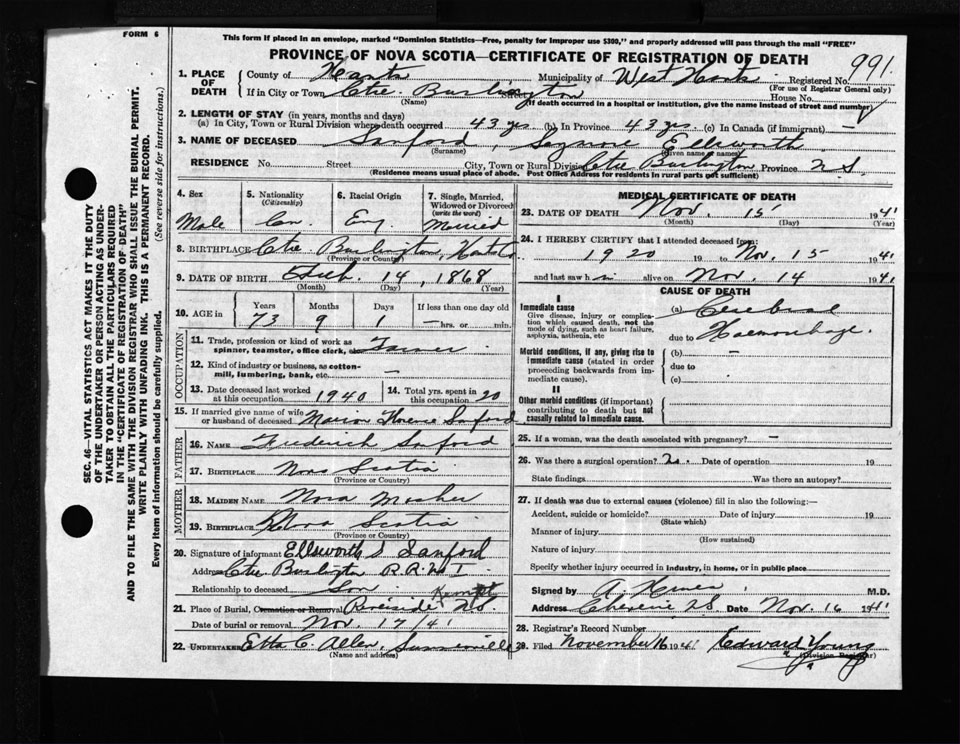 FORM 6
This form if placed in an envelope, marked "Dominion Statistics—Free, penalty for improper use $300," and properly addressed will pass through the mail "FREE"
PROVINCE OF NOVA SCOTIA—CERTIFICATE OF REGISTRATION OF DEATH
991.
1. PLACE OF DEATH
County of Hants Municipality of West Hants Registered No.
(For use of Registrar General only)
If in City or Town Ctre. Burlington Street House No.
(Name) (If death occurred in a hospital or institution, give the name instead of street and number)
2. LENGTH OF STAY (in years, months and days)
(a) In City, Town or Rural Division where death occurred 43 yrs (b) In Province 43 yrs. (c) In Canada (if immigrant) —
3. NAME OF DECEASED Sanford, Ellsworth
(Surname) (Given name or names)
RESIDENCE No. Street City, Town or Rural Division Ctre Burlington Province N.S.
(Residence means usual place of abode. Post Office Address for residents in rural parts not sufficient)
4. Sex
Male
5. Nationality
(Citizenship)
Can
6. Racial Origin
Eng
7. Single, Married, Widowed or Divorced
(write the word)
Married
8. BIRTHPLACE Ctre. Burlington, Hants
(Province or Country)
9. DATE OF BIRTH Feb. 14, 1868
(Month) (Day) (Year)
10. AGE IN
Years Months Days If less than one day old
73 9 1 — hrs. or min.
OCCUPATION
11. Trade, profession or kind of work as spinner, teamster, office clerk, etc. Farmer
12. Kind of industry or business, as cotton-mill, lumbering, bank, etc. —
13. Date deceased last worked at this occupation 1940
14. Total yrs. spent in this occupation 20
15. If married give name of wife or husband of deceased Marion Florence Sanford
FATHER
16. NAME Frederick Sanford
17. BIRTHPLACE Nova Scotia
(Province or Country)
MOTHER
18. MAIDEN NAME Nora Mosher
19. BIRTHPLACE Nova Scotia
(Province or Country)
20. Signature of informant Ellsworth S Sanford
Address Ctre Burlington R.R. No 1
Relationship to deceased Son
21. Place of Burial, Cremation or Removal Riverside Kempt N.S.
Date of burial or removal Nov. 17/41
22. UNDERTAKER Etta C. Allen, Summerville
(Name and address)
MEDICAL CERTIFICATE OF DEATH
23. DATE OF DEATH Nov. 15 1941
(Month) (Day) (Year)
24. I HEREBY CERTIFY that I attended deceased from:
1920 19 to Nov. 15 1941
and last saw h m alive on Nov. 14 1941
CAUSE OF DEATH
I
Immediate cause
Give disease, injury or complication which caused death, not the mode of dying, such as heart failure, asphyxia, asthenia, etc
(a) Cerebral
due to Haemorrhage.
Morbid conditions, if any, giving rise to immediate cause (stated in order proceeding backwards from immediate cause).
(b) —
due to
(c)
II
Other morbid conditions (if important) contributing to death but not causally related to immediate cause.
25. If a woman, was the death associated with pregnancy? —
26. Was there a surgical operation? No. Date of operation 19
State findings Was there an autopsy?
27. If death was due to external causes (violence) fill in also the following:—
Accident, suicide or homicide? Date of injury 19
(State which)
Manner of injury
(How sustained)
Nature of injury
Specify whether injury occurred in industry, in home, or in public place
Signed by M.D.
Address Cheverie N.S. Date Nov. 16 1941
28. Registrar's Record Number
29. Filed November 16 1941 Edward Young
(Division Registrar)
SEC. 46—VITAL STATISTICS ACT MAKES IT THE DUTY
OF THE UNDERTAKER OR PERSON ACTING AS UNDER-
TAKER TO OBTAIN ALL THE PARTICULARS REQUIRED
IN THE "CERTIFICATE OF REGISTRATION OF DEATH"
AND TO FILE THE SAME WITH THE DIVISION REGISTRAR WHO SHALL ISSUE THE BURIAL PERMIT.
WRITE PLAINLY WITH UNFADING INK. THIS IS A PERMANENT RECORD.
Every item of information should be carefully supplied. (See reverse side for instructions.)